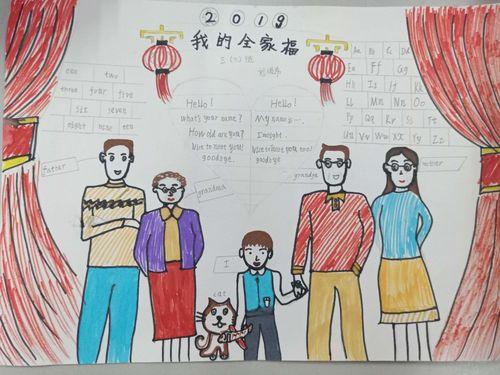 2019
我的全家福
三(二)班
one two
three four five
six seven
eight nine ten
Hello!
what's your name?
How old are you?
Nice to meet you!
goodbye.
Hello!
My name is...
I'm eight.
Nice to meet you too!
goodbye.
Aa Bb Cc Dd
Ee Ff Gg
Hh Ii Jj Kk
Ll Mm Nn Oo
Pp Qq Rr Ss Tt
Uu Vv Ww Xx Yy Zz
father
grandma
grandpa
mother
I
cat